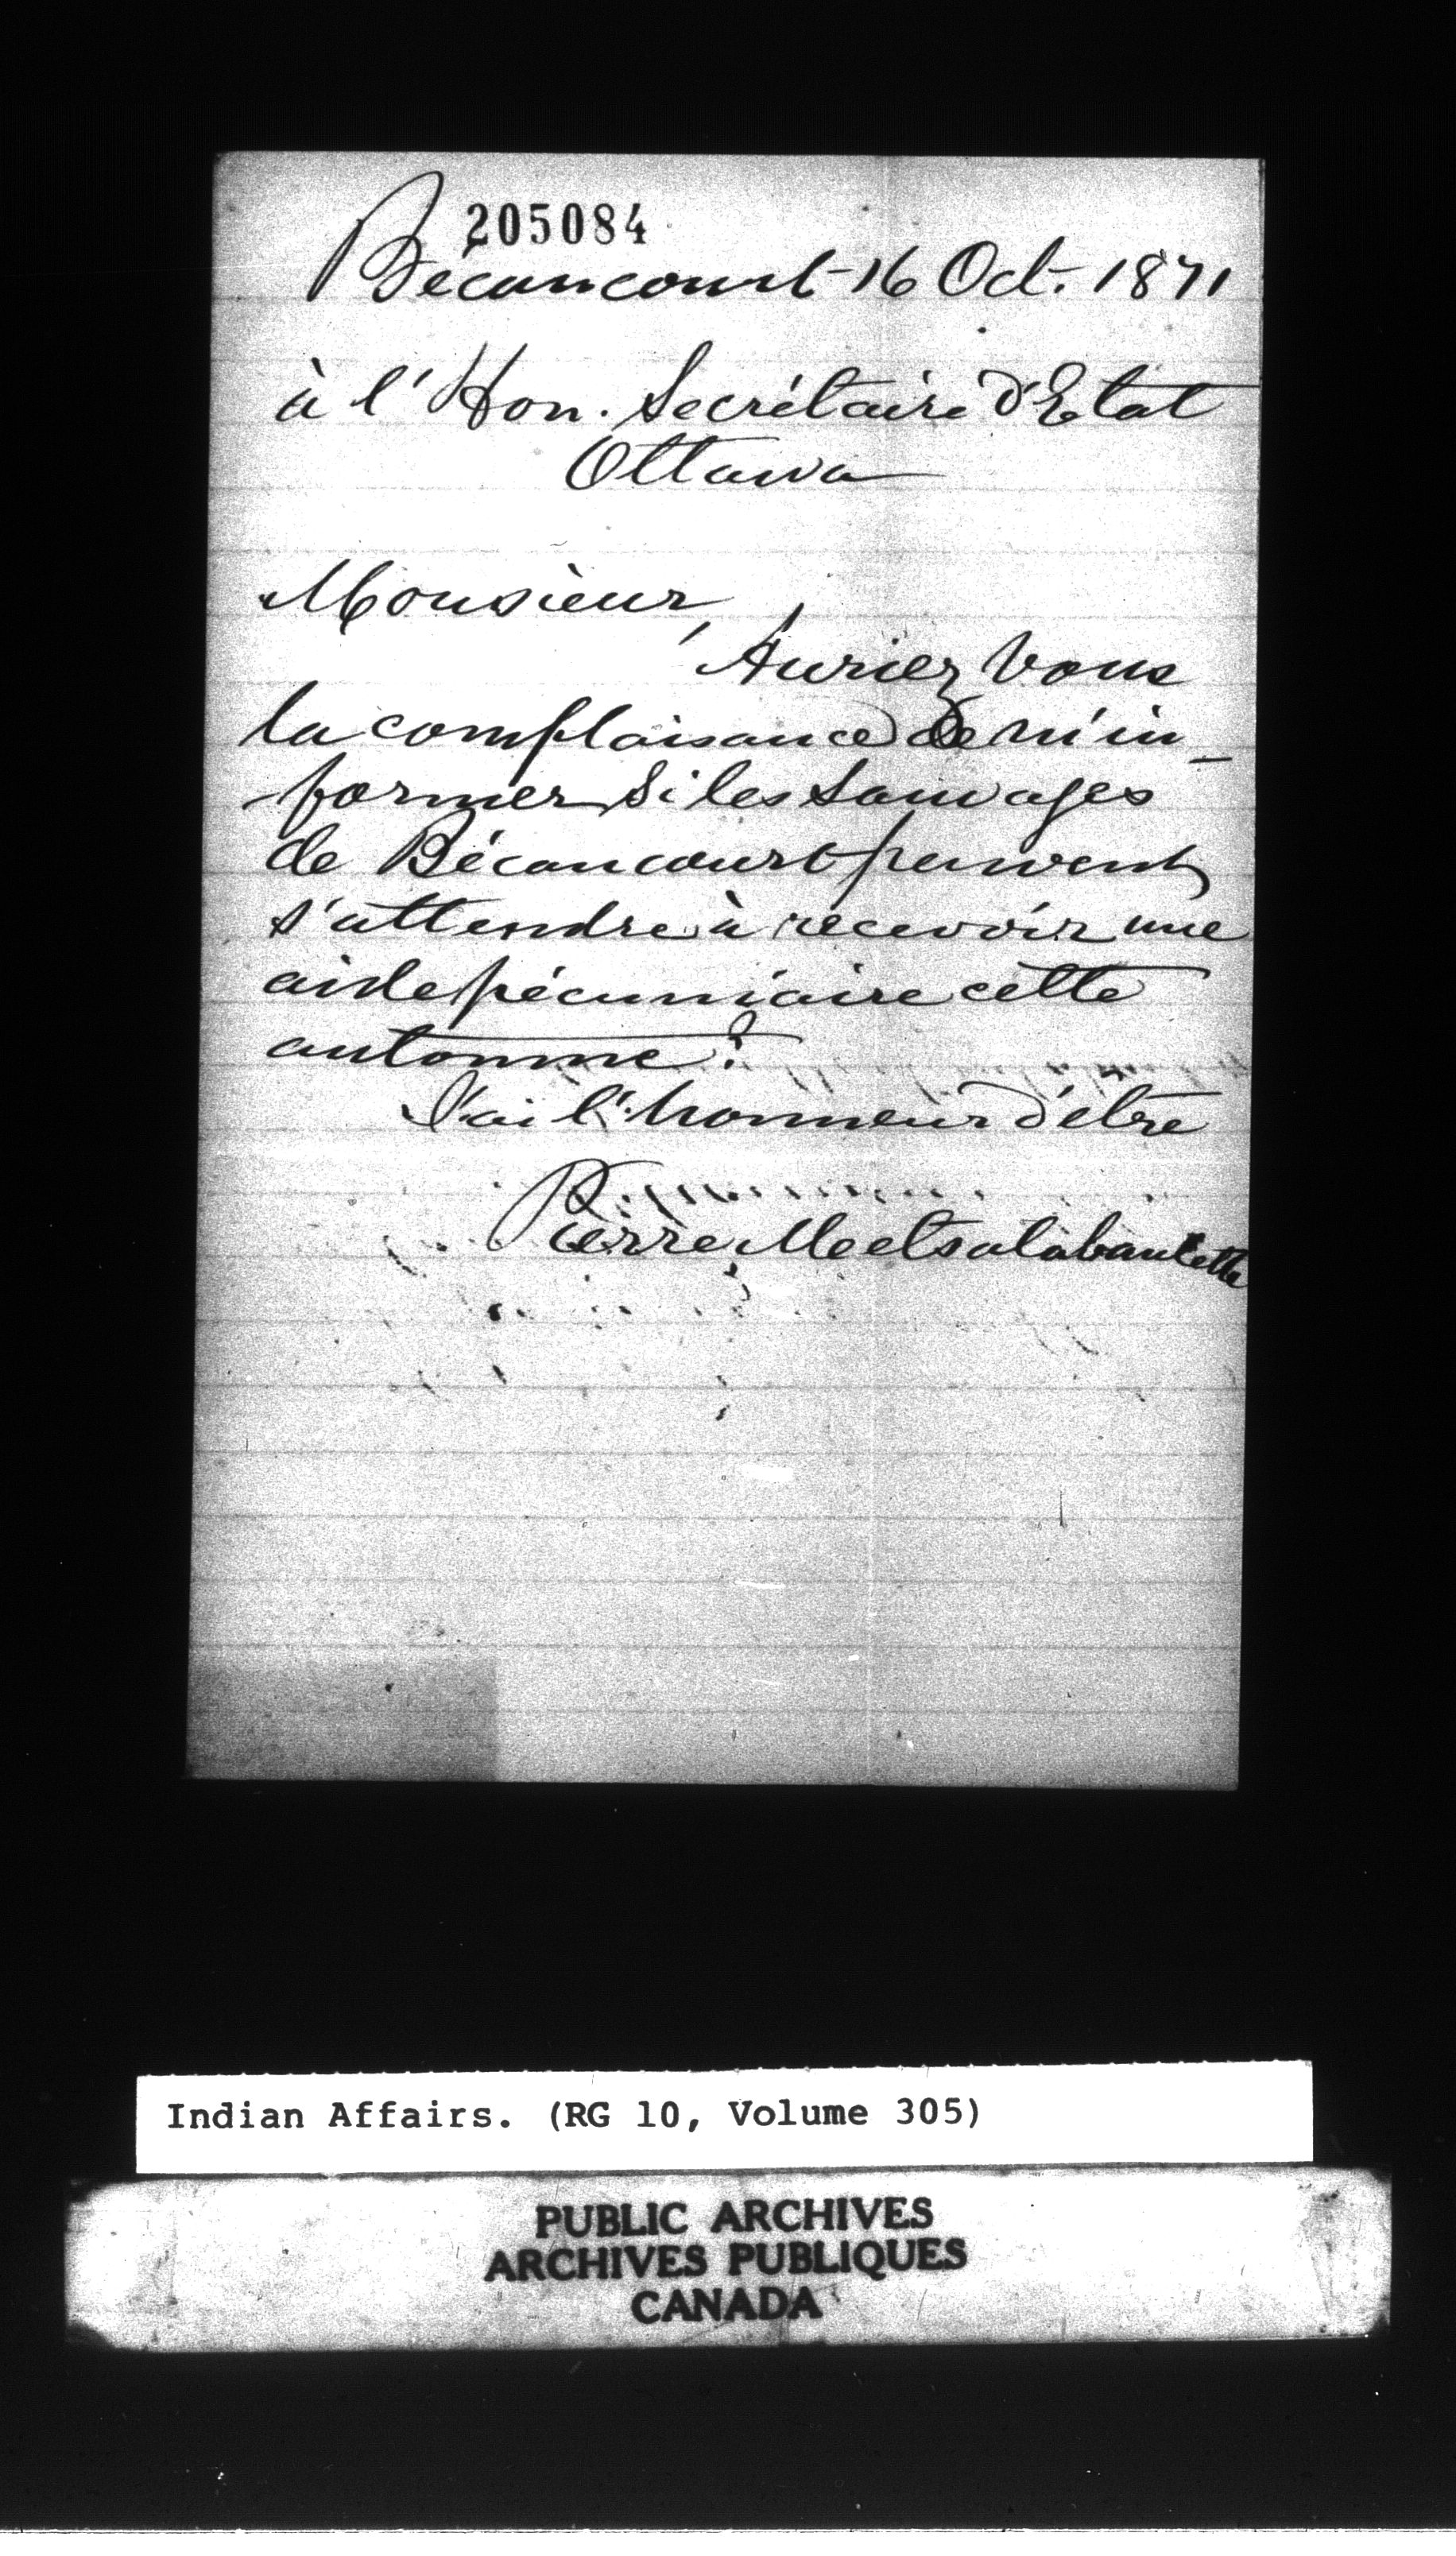 205084
Bécancourt 16 Oct. 1871
à l'Hon. Secrétaire d'Etat
Ottawa
Monsieur,
Auriez vous
la complaisance de m'in-
former si les Sauvages
de Bécancourt peuvent
s'attendre à recevoir une
aide pécuniaire cette
automne?
J'ai l'honneur d'être
Pierre Meetsalabaulette
Indian Affairs. (RG 10, Volume 305)
PUBLIC ARCHIVES
ARCHIVES PUBLIQUES
CANADA